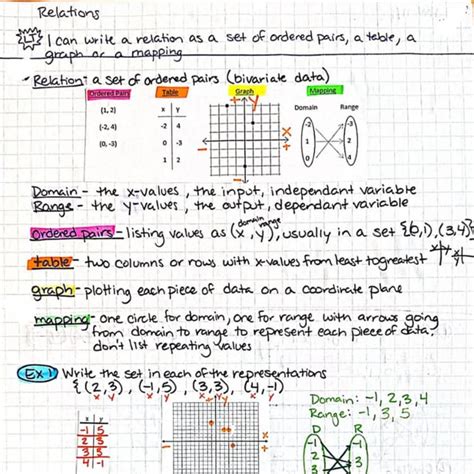 Relations
LT I can write a relation as a set of ordered pairs, a table, a
graph or a mapping
Relation: a set of ordered pairs (bivariate data)
Ordered Pairs Table Graph Mapping
(1, 2)
(-2, 4)
(0, -3)
x y
-2 4
0 -3
1 2
y
x
Domain Range
-2 -3
1 2
0 4
Domain - the x-values, the input, independant variable
Range - the y-values, the output, dependant variable
domain range
Ordered pairs - listing values as (x, y), usually in a set {(0,1), (3,4)}
table - two columns or rows with x-values from least to greatest
graph - plotting each piece of data on a coordinate plane
mapping - one circle for domain, one for range with arrows going
from domain to range to represent each piece of data.
don't list repeating values
Ex 1 Write the set in each of the representations
{(2,3), (-1,5), (3,3), (4,-1)
x y x y x y x y
Domain: -1, 2, 3, 4
Range: -1, 3, 5
x y
-1 5
2 3
3 3
4 -1
D R
-1 -1
2 3
3 5